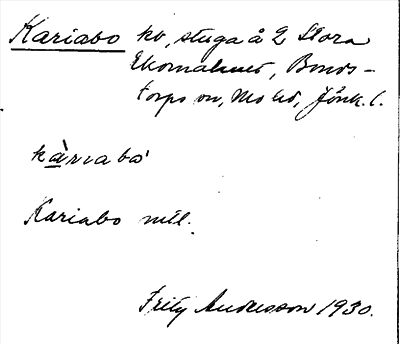 Kariabo ko, stuga å 2 Stora
Ekornahuvd, Bonds-
torps sn, Mo hd, Jönk. l.
kàrıabo'
Kariabo mtl.
Fritz Andersson 1930.